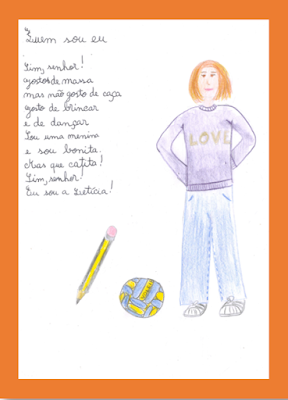 Quem sou eu
Sim, senhor!
gosto de massa
mas não gosto de caça
gosto de brincar
e de dançar
Sou uma menina
e sou bonita.
Mas que catita!
Sim, senhor!
Eu sou a Letícia!
LOVE